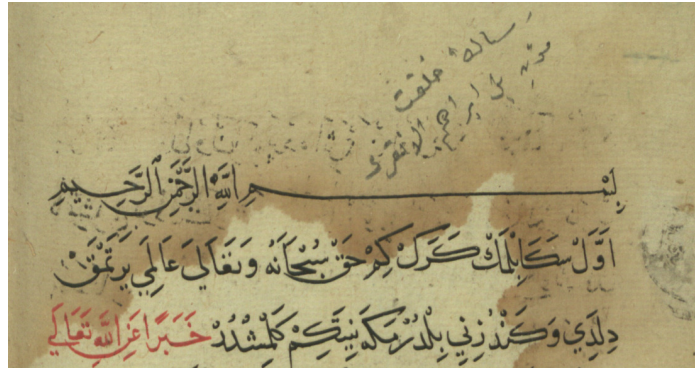 رساله خلقت
بن ابراهيم الانقروى
بِسْمِ اللّٰهِ الرَّحْمٰنِ الرَّحِيمِ
اَوَّلْ سَكَا بِلْمَكْ كَرَكْ كِمْ حَقْ سُبْحَانَهُ وَتَعَالَى عَالَمِي يَرَتْمَقْ
دِلَدِي وَكَنْدُزِنِي بِلْدُرْمَكَه نِيتَكِمْ كَلْمِشْدُرْ خَبَرًا عَنِ اللّٰهِ تَعَالَى